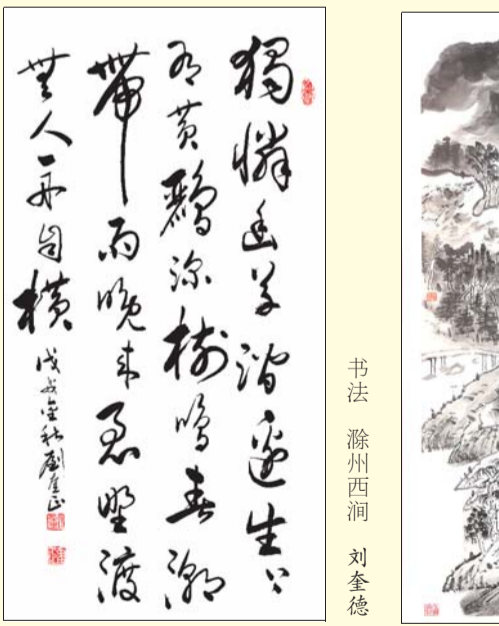 獨憐幽草澗邊生上
有黃鸝深樹鳴春潮
帶雨晚来急野渡
無人舟自橫
戊戌金秋劉奎
书法 滁州西涧 刘奎德